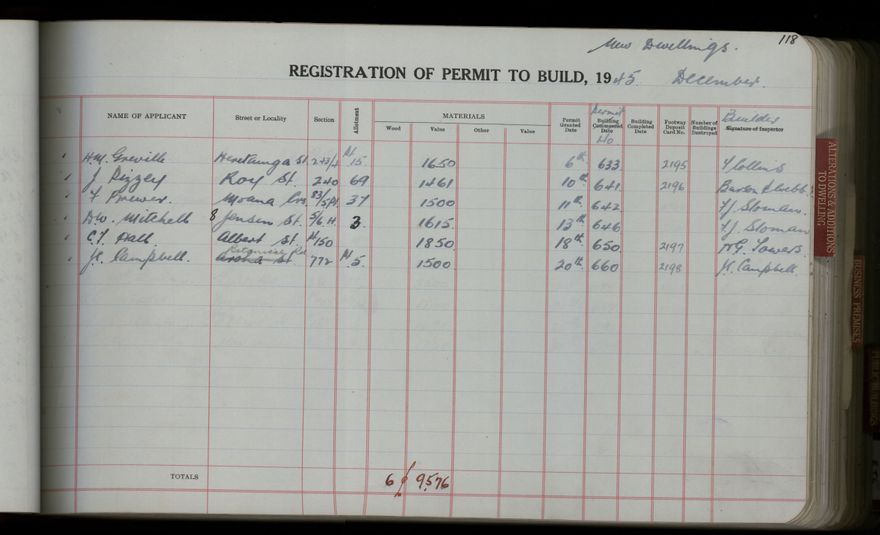 118
New Dwellings.
REGISTRATION OF PERMIT TO BUILD, 1945. December.
NAME OF APPLICANT Street or Locality Section Allotment MATERIALS Wood Value Other Value Permit Granted Date Permit No Building Commenced Date Building Completed Date Footway Deposit Card No. Number of Buildings Destroyed Builder Signature of Inspector
H.M. Greville Heretaunga St. Pt 15. 1650 6th 633 2195 Collins
J. Pizzey Roy St. 240 69 1461 10th 641 2196
F. Brewer. Moana Cres. 37 1500 11th 642 F.J. Sloman.
D.W. Mitchell 8 Jensen St. 5/6 H 3 1615. 13th 646 F.J. Sloman
C.T. Hall. Albert St. Pt 150 1850 18th 650 2197 Towers
J.R. Campbell. St 772 Pt 5. 1500 20th 660 2198 J.R. Campbell.
TOTALS 6 9576
ALTERATIONS & ADDITIONS TO DWELLING
BUSINESS PREMISES
PUBLIC BUILDINGS